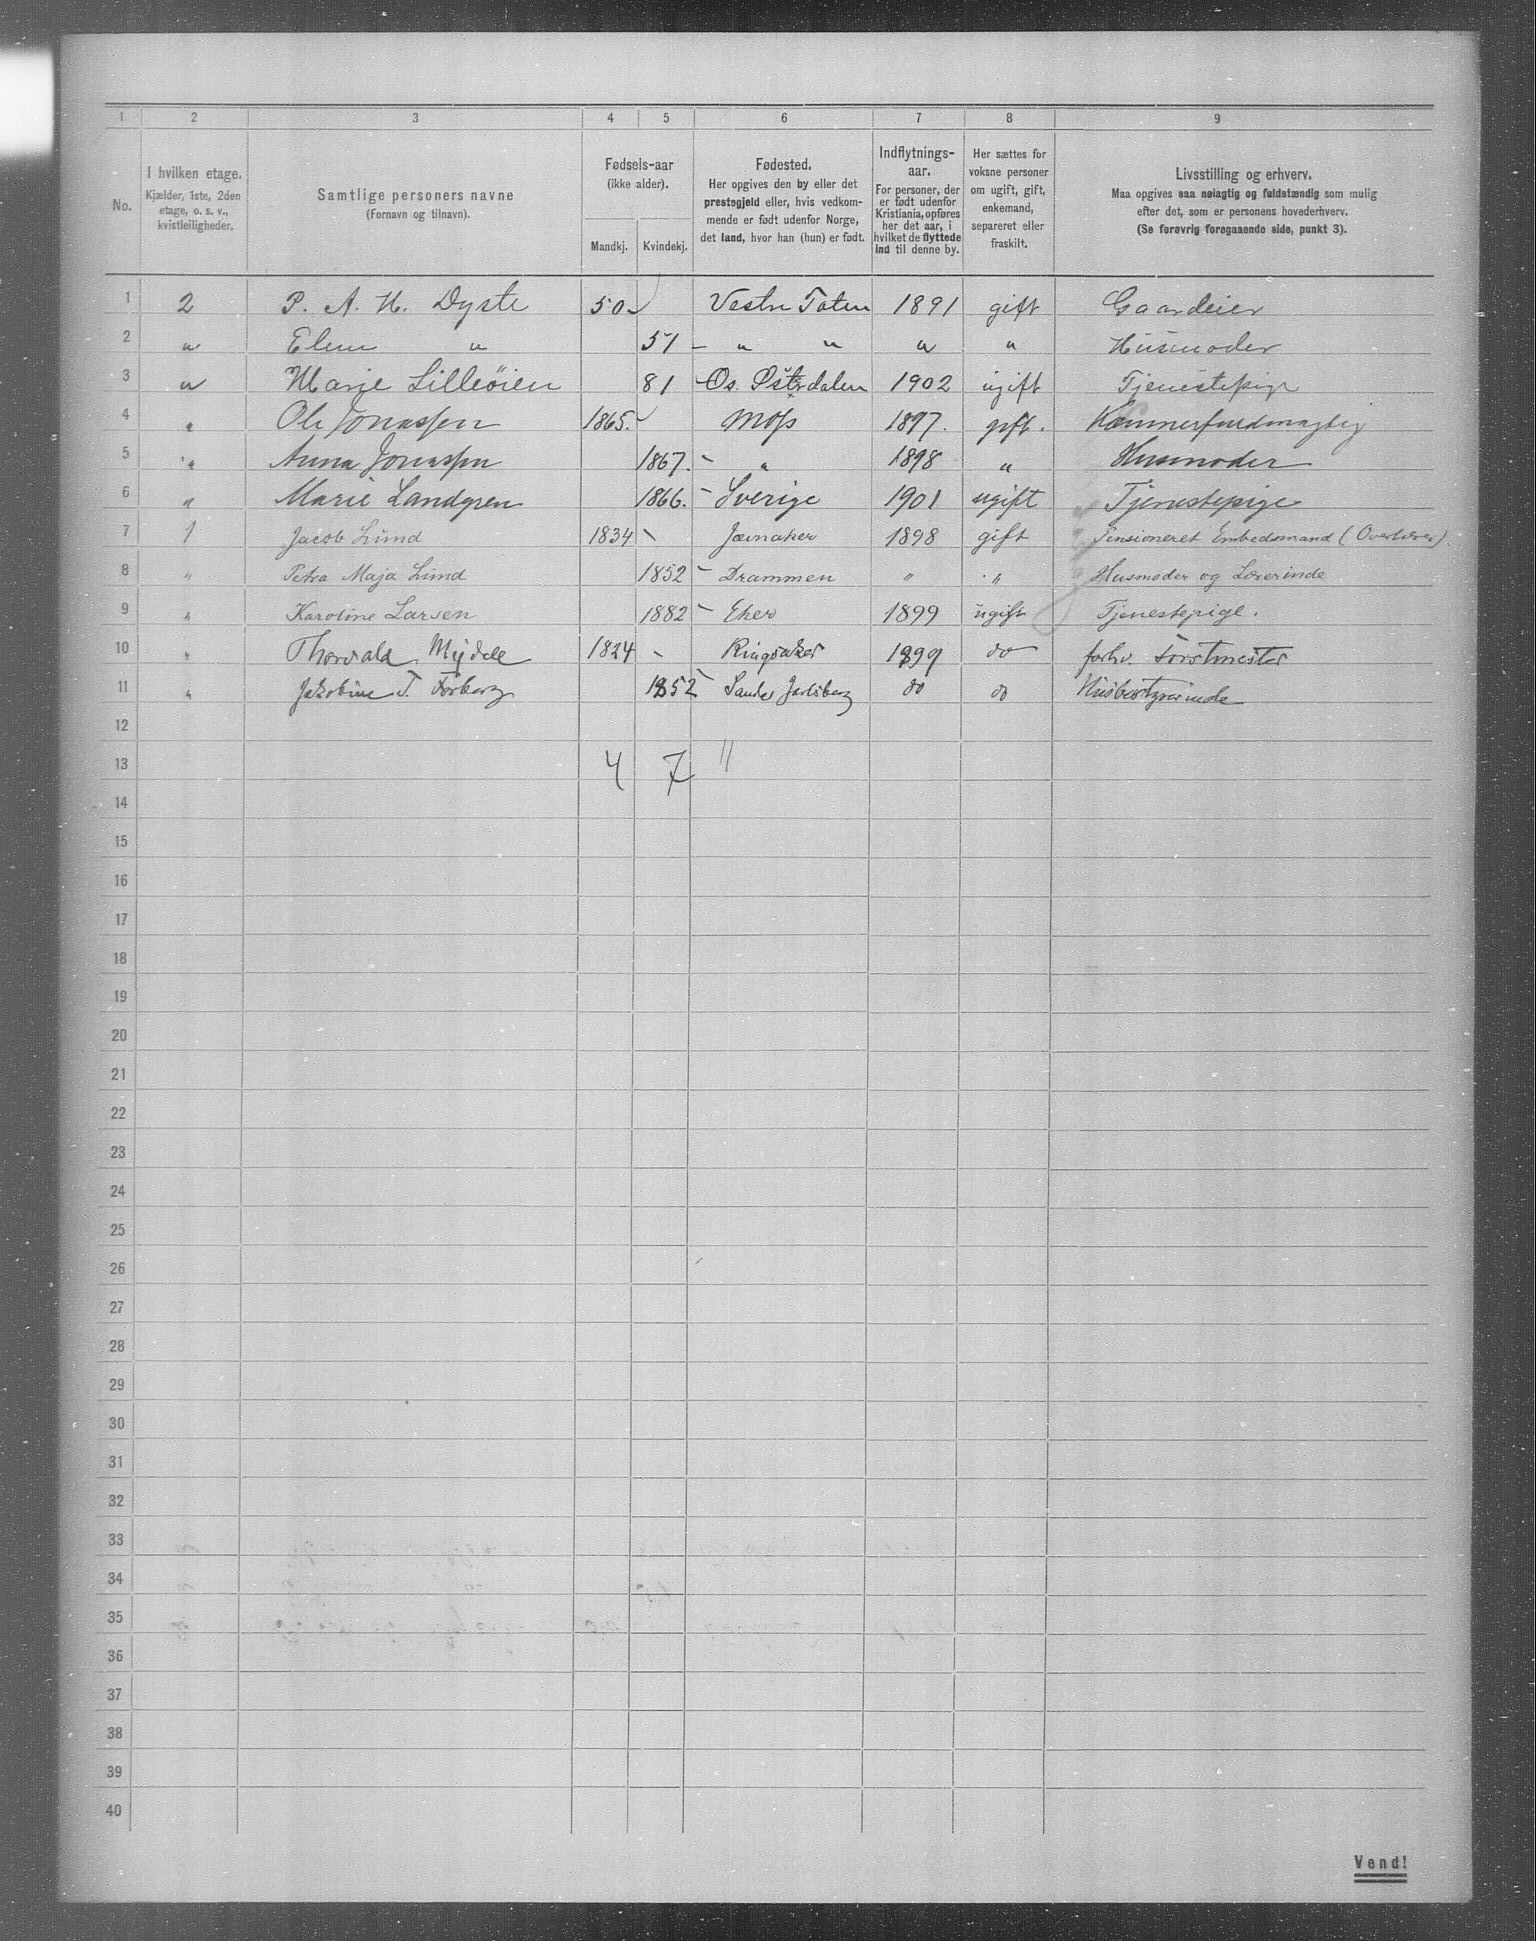 1 2 3 4 5 6 7 8 9
No.
I hvilken etage.
Kjælder, 1ste, 2den
etage, o. s. v.,
kvistleiligheder.
Samtlige personers navne
(Fornavn og tilnavn).
Fødsels-aar
(ikke alder).
Mandkj. Kvindekj.
Fødested.
Her opgives den by eller det
prestegjeld eller, hvis vedkom-
mende er født udenfor Norge,
det land, hvor han (hun) er født.
Indflytnings-
aar.
For personer, der
er født udenfor
Kristiania, opføres
her det aar, i
hvilket de flyttede
ind til denne by.
Her sættes for
voksne personer
om ugift, gift,
enkemand,
separeret eller
fraskilt.
Livsstilling og erhverv.
Maa opgives saa nøiagtig og fuldstændig som mulig
efter det, som er personens hovederhverv.
(Se forøvrig foregaaende side, punkt 3).
1 2 P. A. H. Dyste 50 Vestre Toten 1891 gift Gaardeier
2 " Elene " 51 " " " " Husmoder
3 " Marie Lilleøien 81 Os. Østerdalen 1902 ugift Tjenestepige
4 " Ole Jonassen 1865. Moss 1897. gift. Kæmnerfuldmægtig
5 " Anna Jonassen 1867. " 1898 " Husmoder
6 " Marie Landgren 1866. Sverige 1901 ugift Tjenestepige
7 1 Jacob Lund 1834 Jævnaker 1898 gift Pensioneret Embedsmand (Overlærer).
8 " Petra Maja Lund 1852 Drammen " " Husmoder og Lærerinde
9 " Karoline Larsen 1882 Eker 1899 ugift Tjenestepige.
10 " Thorvald Mejdell 1824 Ringsaker 1899 do forhv. Forstmester
11 " Jakobine T. Forberg 1852 Sande Jarlsberg do do Husbestyrerinde
12
13 4 7 11
14
15
16
17
18
19
20
21
22
23
24
25
26
27
28
29
30
31
32
33
34
35
36
37
38
39
40
Vend!